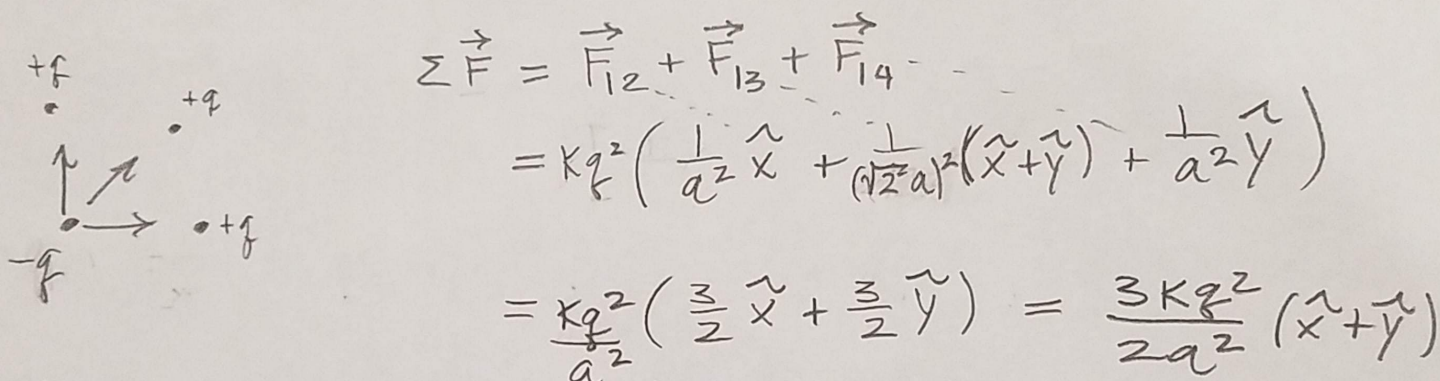 +q
+q
-q
+q
Σ F⃗ = F⃗₁₂ + F⃗₁₃ + F⃗₁₄
= Kq² ( 1/a² x̂ + 1/(√2 a)² (x̂+ŷ) + 1/a² ŷ )
= Kq²/a² ( 3/2 x̂ + 3/2 ŷ ) = 3Kq²/2a² (x̂+ŷ)